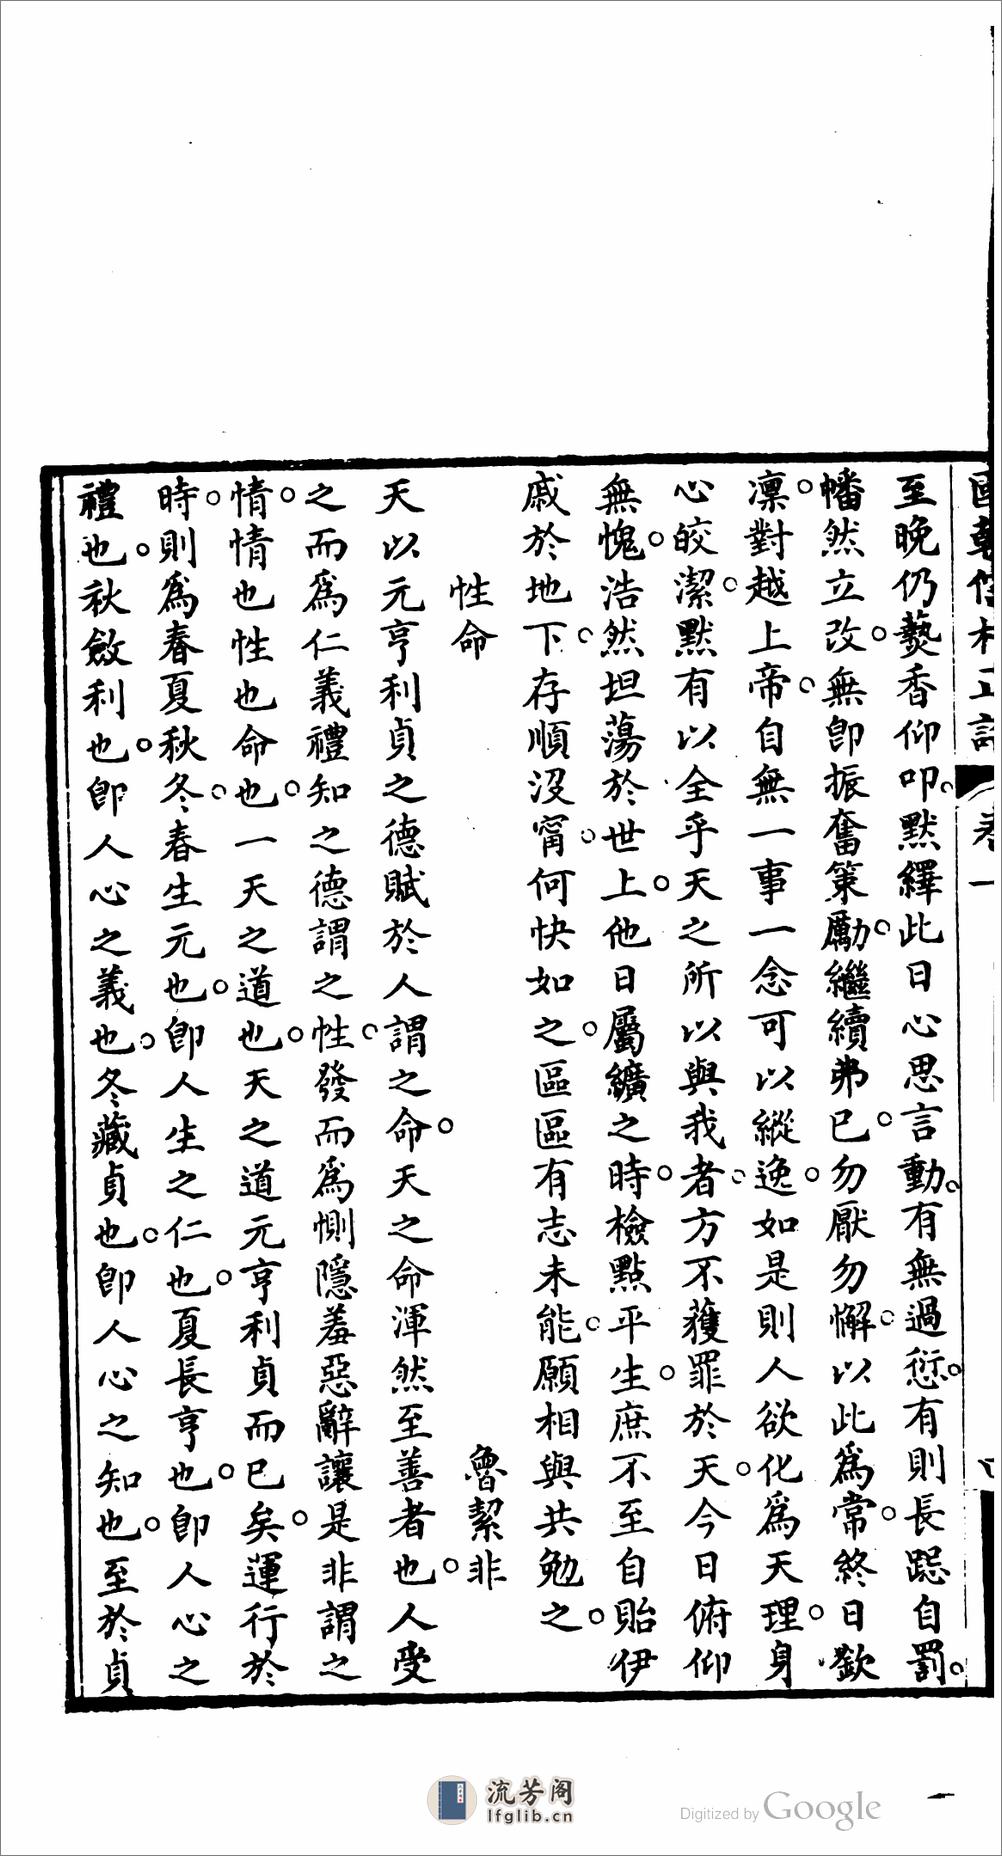 至晚仍爇香仰叩。默繹此日心思言動。有無過愆。有則長跽自罰。
幡然立改。無卽振奮策勵。繼續弗已。勿厭勿懈。以此爲常。終日欽
凜。對越上帝。自無一事一念可以縱逸。如是則人欲化爲天理。身
心皎潔。默有以全乎天之所以與我者。方不獲罪於天。今日俯仰
無愧。浩然坦蕩於世上。他日屬纊之時。檢點平生。庶不至自貽伊
戚於地下。存順沒甯。何快如之。區區有志未能。願相與共勉之。
性命
魯絜非
天以元亨利貞之德賦於人謂之命。天之命渾然至善者也。人受
之而爲仁義禮知之德謂之性。發而爲惻隱羞惡辭讓是非謂之
情。情也性也命也。一天之道也。天之道元亨利貞而已矣。運行於
時。則爲春夏秋冬。春生元也。卽人生之仁也。夏長亨也。卽人心之
禮也。秋斂利也。卽人心之義也。冬藏貞也。卽人心之知也。至於貞
流芳阁
lfglib.cn
Digitized by Google